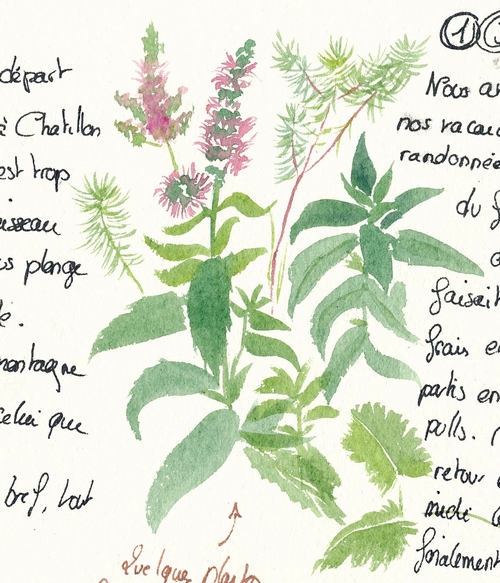 départ
à Chatillon
est trop
plonge
montagne
celui que
bref, tout
Quelques plantes
①
Nous
nos vacan
randonnée
du
faisait
frais e
partis en
pulls.
retour
midi
finalement